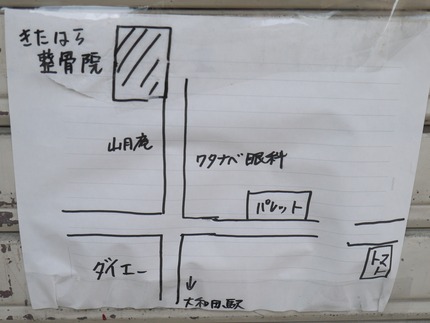 きたはら
整骨院
山月庵
ワタナベ眼科
パレット
ダイエー
トスト
↓
大和田駅